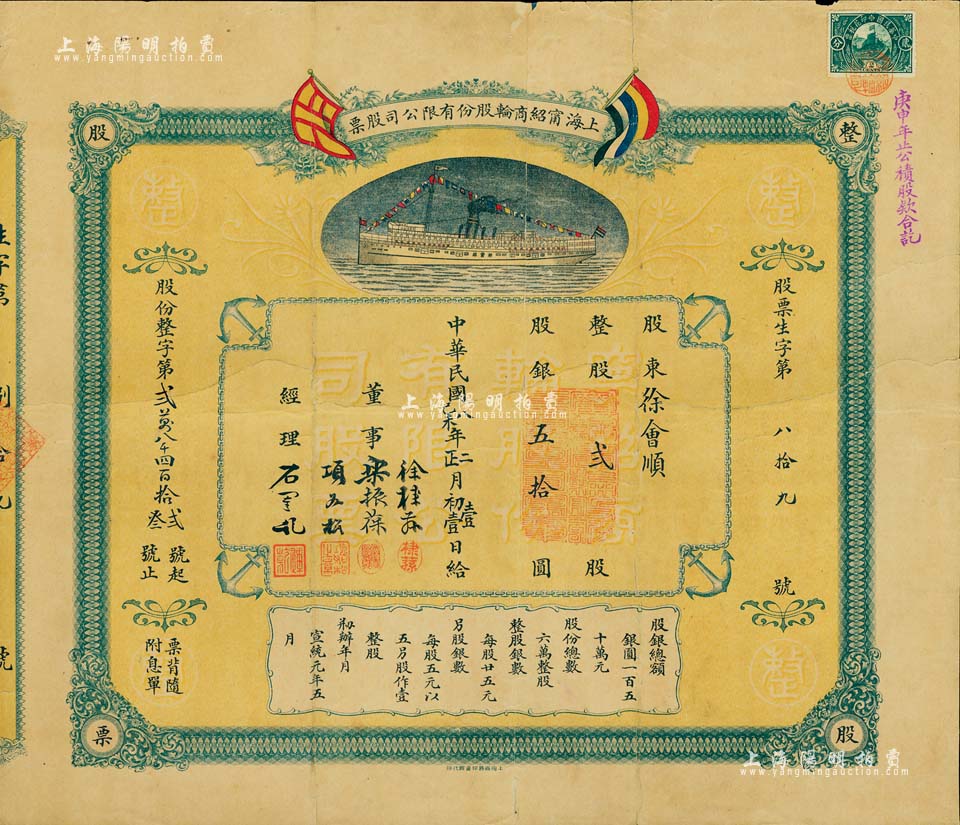 上海陽明拍賣
www.yangmingauction.com
上海甯紹商輪股份有限公司股票
整
股
股
票
庚申年止公積股款合訖
股票生字第 八拾九 號
股東徐會順
整股 弍 股
股銀 五拾 圓
中華民國 年 二月初壹日給
正 壹
董事
徐棣蓀
振葆
項如松
經理 石
股份整字第弍萬八千四百拾弍 號起
叁 號止
票背隨
附息單
股銀總額
銀圓一百五
十萬元
股份總數
六萬整股
整股銀數
每股廿五元
另股銀數
每股五元以
五另股作壹
整股
刱辦年月
宣統元年五
月
上海陽明拍賣
www.yangmingauction.com
上海陽明拍賣
www.yangmingauction.com